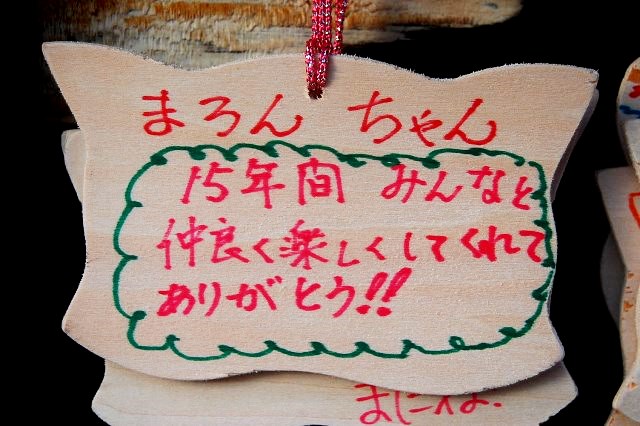 まろん ちゃん
15年間 みんなと
仲良く楽しくしてくれて
ありがとう!!